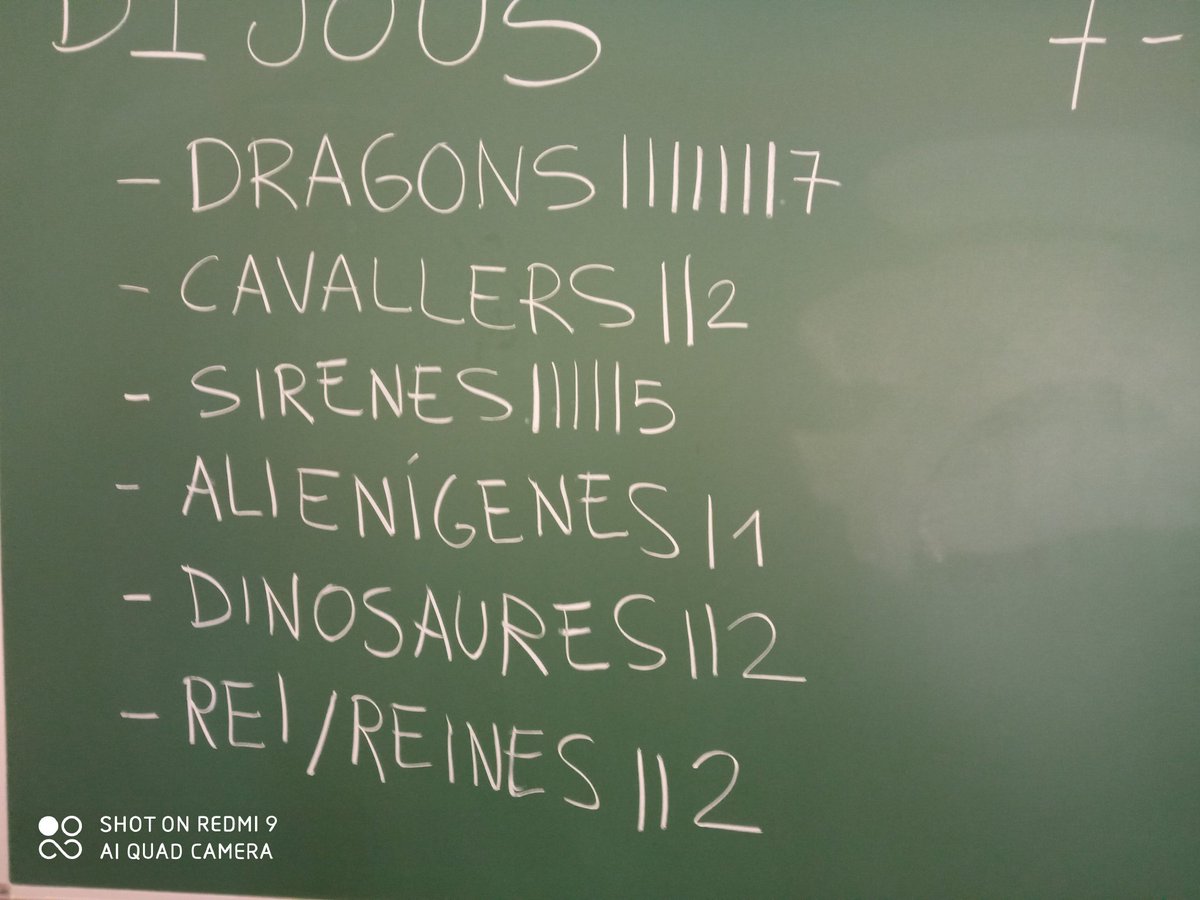 DIJOUS + -
- DRAGONS ||||||| 7
- CAVALLERS || 2
- SIRENES ||||| 5
- ALIENÍGENES | 1
- DINOSAURES || 2
- REI/REINES || 2
SHOT ON REDMI 9
AI QUAD CAMERA